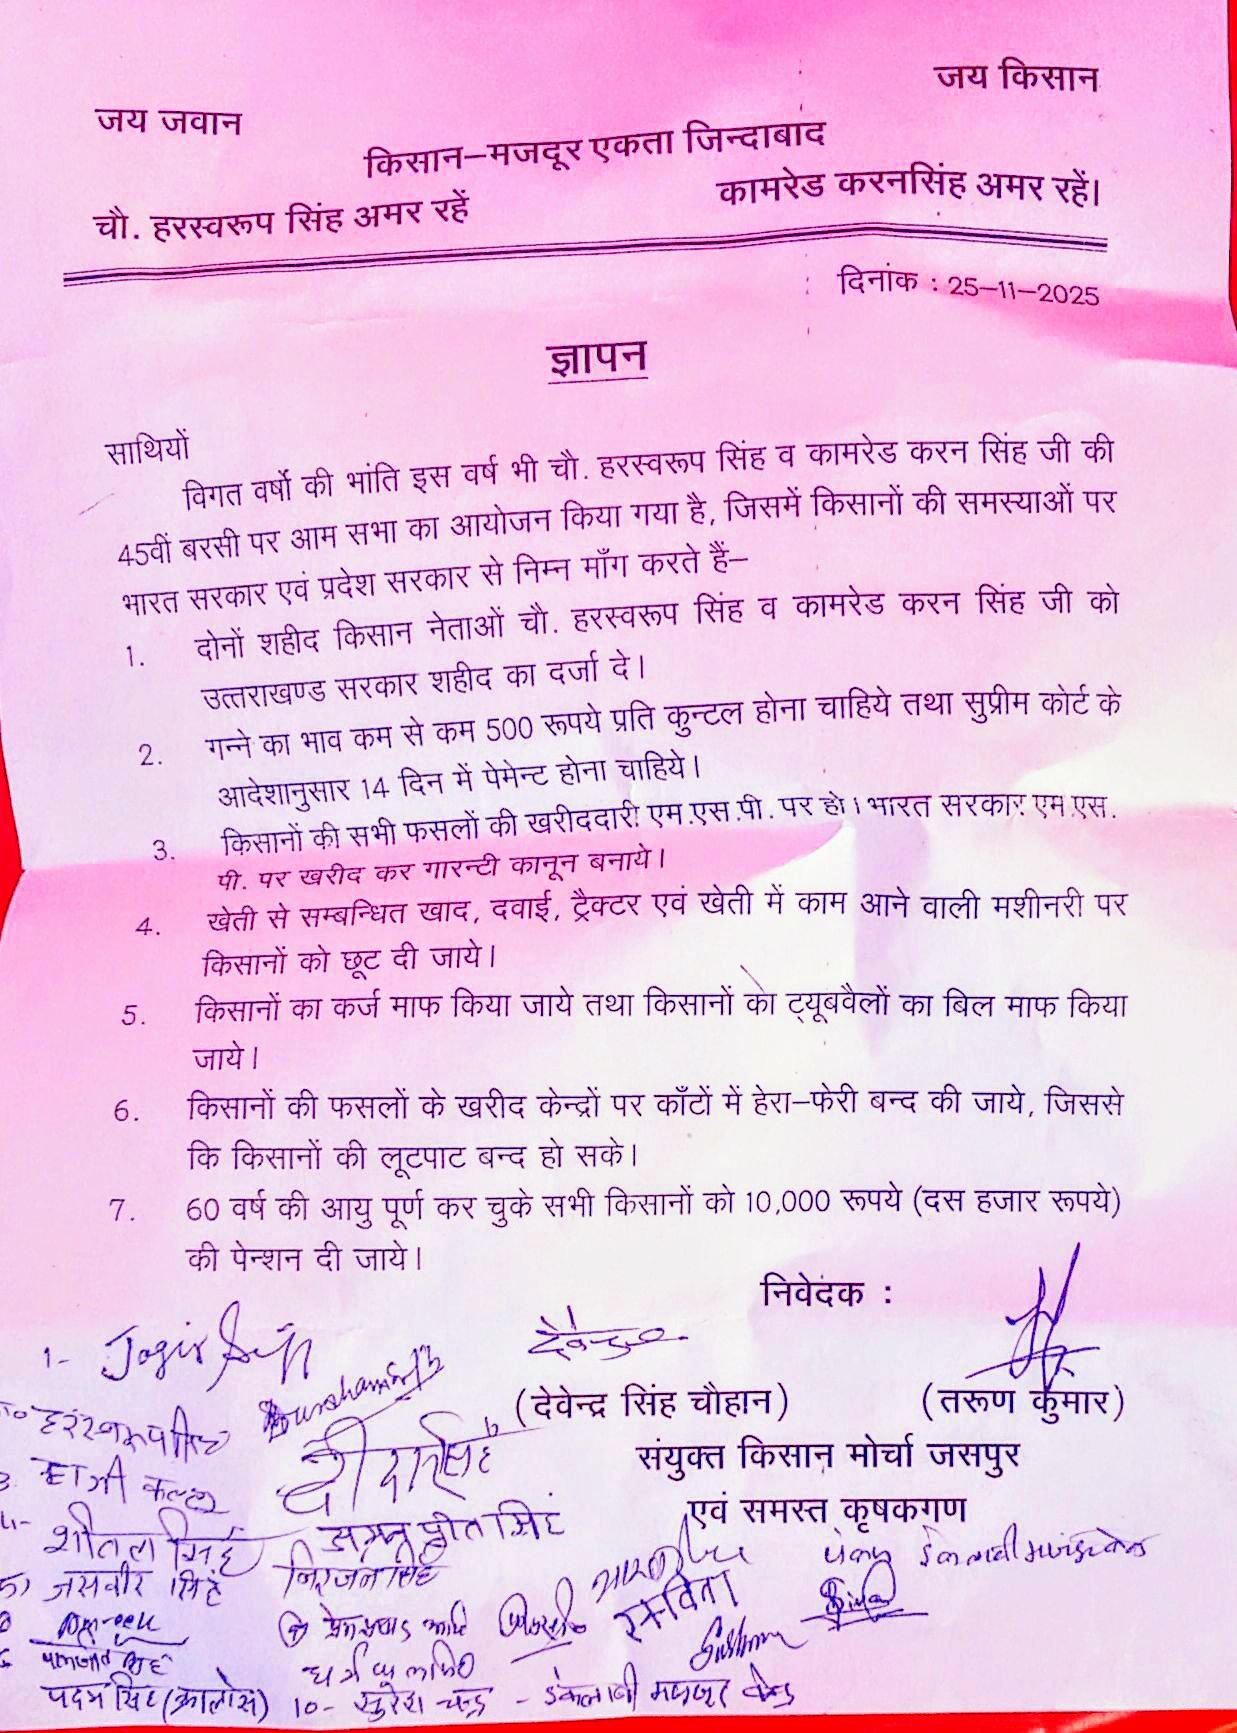 जय जवान
जय किसान
किसान–मजदूर एकता जिन्दाबाद
चौ. हरस्वरूप सिंह अमर रहें
कामरेड करनसिंह अमर रहें।
दिनांक : 25–11–2025
ज्ञापन
साथियों
विगत वर्षो की भांति इस वर्ष भी चौ. हरस्वरूप सिंह व कामरेड करन सिंह जी की
45वीं बरसी पर आम सभा का आयोजन किया गया है, जिसमें किसानों की समस्याओं पर
भारत सरकार एवं प्रदेश सरकार से निम्न माँग करते हैं–
1. दोनों शहीद किसान नेताओं चौ. हरस्वरूप सिंह व कामरेड करन सिंह जी को
उत्तराखण्ड सरकार शहीद का दर्जा दे।
2. गन्ने का भाव कम से कम 500 रूपये प्रति कुन्टल होना चाहिये तथा सुप्रीम कोर्ट के
आदेशानुसार 14 दिन में पेमेन्ट होना चाहिये।
3. किसानों की सभी फसलों की खरीददारी एम.एस.पी. पर हो। भारत सरकार एम.एस.
पी. पर खरीद कर गारन्टी कानून बनाये।
4. खेती से सम्बन्धित खाद, दवाई, ट्रैक्टर एवं खेती में काम आने वाली मशीनरी पर
किसानों को छूट दी जाये।
5. किसानों का कर्ज माफ किया जाये तथा किसानों का ट्यूबवैलों का बिल माफ किया
जाये।
6. किसानों की फसलों के खरीद केन्द्रों पर काँटों में हेरा–फेरी बन्द की जाये, जिससे
कि किसानों की लूटपाट बन्द हो सके।
7. 60 वर्ष की आयु पूर्ण कर चुके सभी किसानों को 10,000 रूपये (दस हजार रूपये)
की पेन्शन दी जाये।
निवेदक :
1- Jagir Singh
(देवेन्द्र सिंह चौहान)
(तरूण कुमार)
संयुक्त किसान मोर्चा जसपुर
एवं समस्त कृषकगण
शीतल सिंह
जसवीर सिंह
निरंजन सिंह
पदम सिंह
10- सुरेश चन्द्र - इंकलाबी मजदूर केन्द्र